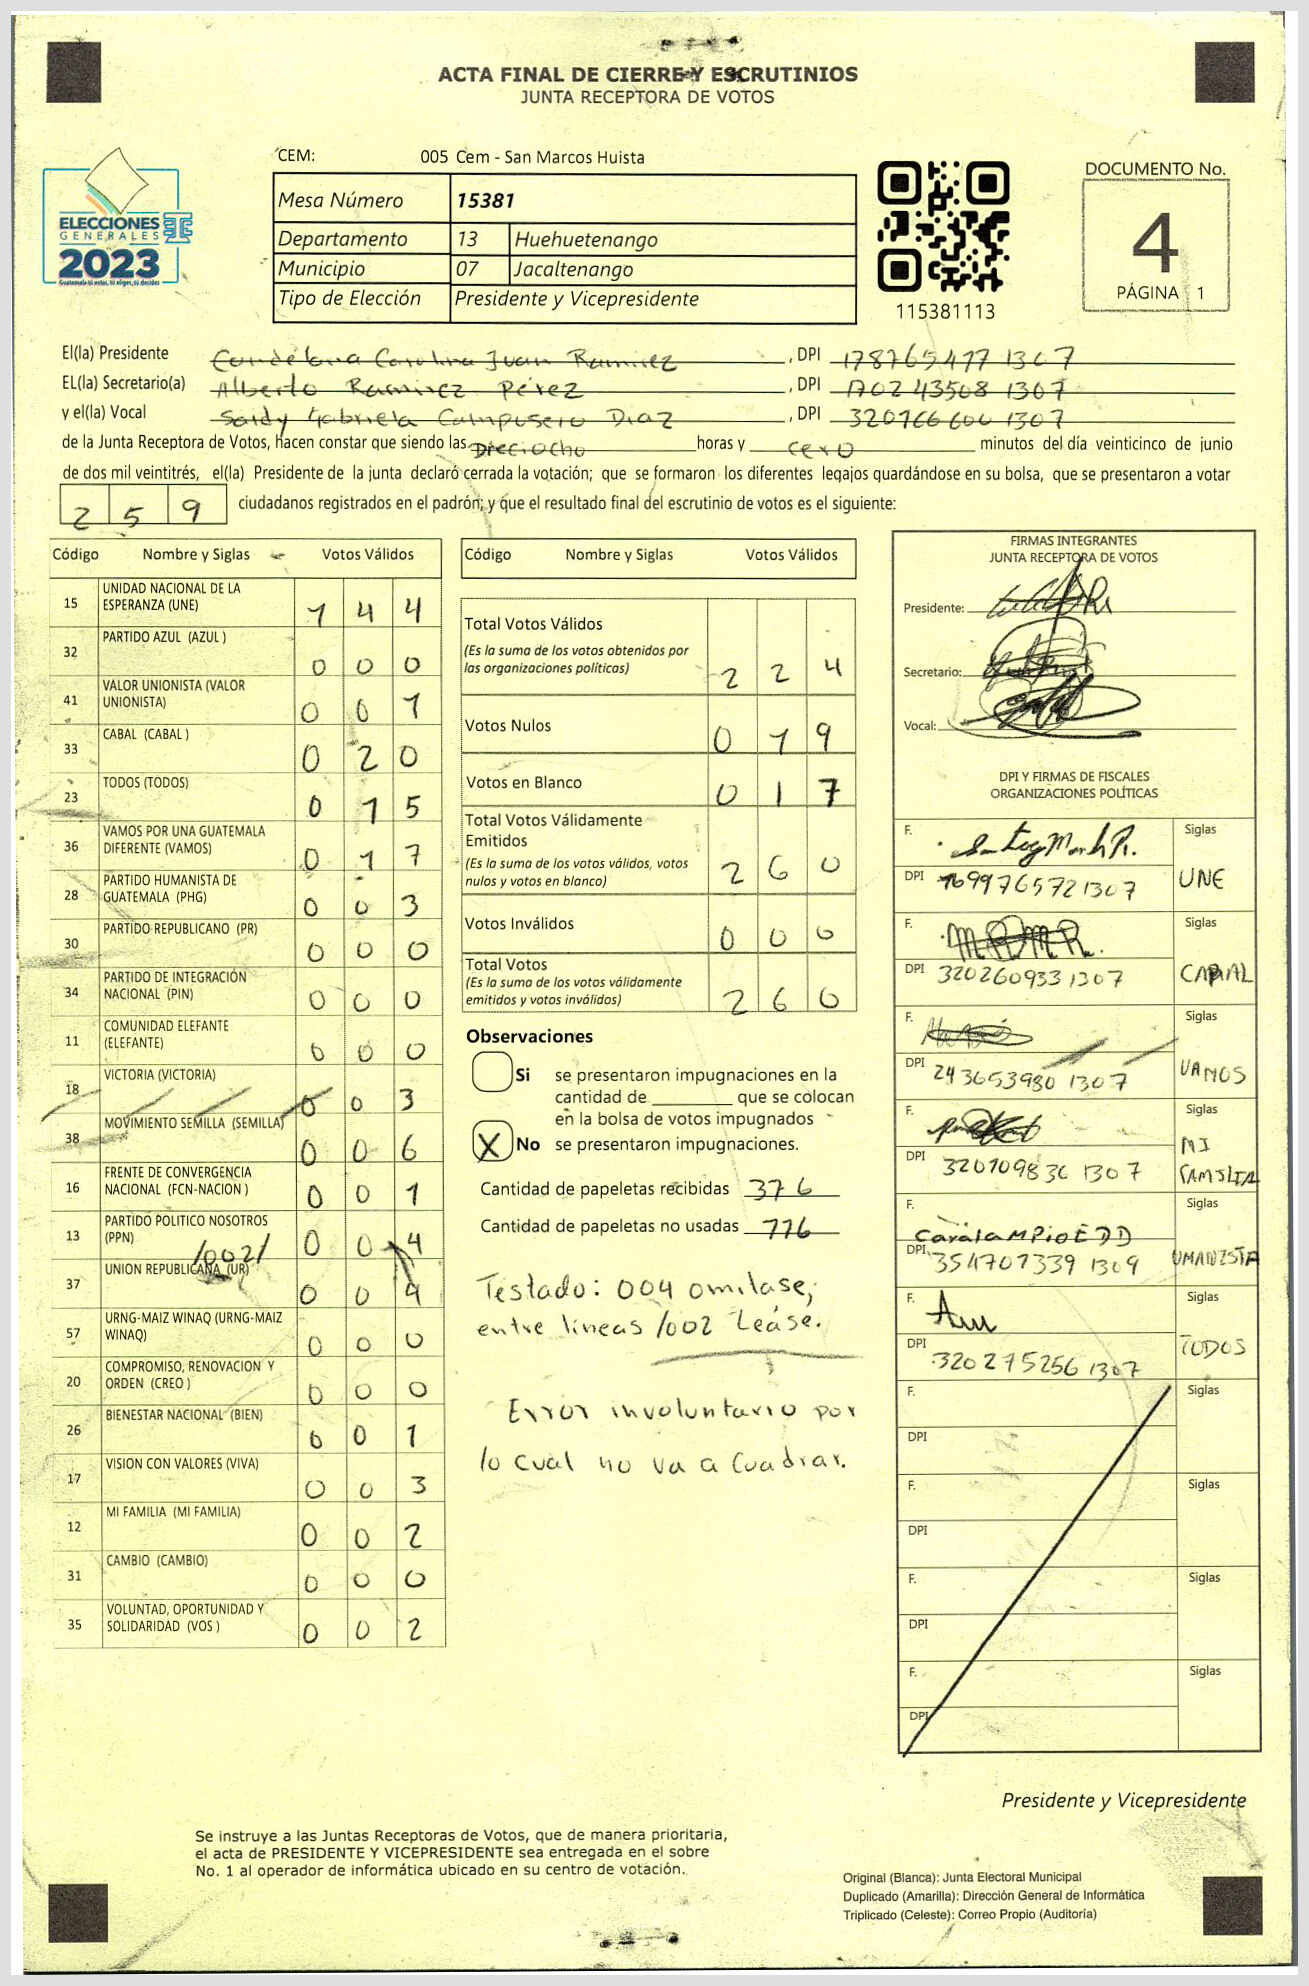 ACTA FINAL DE CIERRE Y ESCRUTINIOS
JUNTA RECEPTORA DE VOTOS
CEM: 005 Cem - San Marcos Huista
ELECCIONES
GENERALES
2023
Guatemala tú votas, tú eliges, tú decides
Mesa Número 15381
Departamento 13 Huehuetenango
Municipio 07 Jacaltenango
Tipo de Elección Presidente y Vicepresidente
115381113
DOCUMENTO No.
4
PÁGINA 1
El(la) Presidente Candelaria Carolina Juan Ramirez, DPI 178765477 1307
EL(la) Secretario(a) Alberto Ramirez Pérez, DPI 170243508 1307
y el(la) Vocal Gabriela Camposeco Diaz, DPI 320766600 1307
de la Junta Receptora de Votos, hacen constar que siendo las Dieciocho horas y cero minutos del día veinticinco de junio
de dos mil veintitrés, el(la) Presidente de la junta declaró cerrada la votación; que se formaron los diferentes legajos guardándose en su bolsa, que se presentaron a votar
259 ciudadanos registrados en el padrón; y que el resultado final del escrutinio de votos es el siguiente:
Código Nombre y Siglas Votos Válidos
15 UNIDAD NACIONAL DE LA ESPERANZA (UNE) 1 4 4
32 PARTIDO AZUL (AZUL ) 0 0 0
41 VALOR UNIONISTA (VALOR UNIONISTA) 0 0 1
33 CABAL (CABAL ) 0 2 0
23 TODOS (TODOS) 0 1 5
36 VAMOS POR UNA GUATEMALA DIFERENTE (VAMOS) 0 1 7
28 PARTIDO HUMANISTA DE GUATEMALA (PHG) 0 0 3
30 PARTIDO REPUBLICANO (PR) 0 0 0
34 PARTIDO DE INTEGRACIÓN NACIONAL (PIN) 0 0 0
11 COMUNIDAD ELEFANTE (ELEFANTE) 0 0 0
18 VICTORIA (VICTORIA) 0 0 3
38 MOVIMIENTO SEMILLA (SEMILLA) 0 0 6
16 FRENTE DE CONVERGENCIA NACIONAL (FCN-NACION ) 0 0 1
13 PARTIDO POLITICO NOSOTROS (PPN) 0 0 4
/002/
37 UNION REPUBLICANA (UR) 0 0 4
57 URNG-MAIZ WINAQ (URNG-MAIZ WINAQ) 0 0 0
20 COMPROMISO, RENOVACION Y ORDEN (CREO ) 0 0 0
26 BIENESTAR NACIONAL (BIEN) 0 0 1
17 VISION CON VALORES (VIVA) 0 0 3
12 MI FAMILIA (MI FAMILIA) 0 0 2
31 CAMBIO (CAMBIO) 0 0 0
35 VOLUNTAD, OPORTUNIDAD Y SOLIDARIDAD (VOS ) 0 0 2
Código Nombre y Siglas Votos Válidos
Total Votos Válidos 2 2 4
(Es la suma de los votos obtenidos por
las organizaciones políticas)
Votos Nulos 0 1 9
Votos en Blanco 0 1 7
Total Votos Válidamente
Emitidos 2 6 0
(Es la suma de los votos válidos, votos
nulos y votos en blanco)
Votos Inválidos 0 0 0
Total Votos 2 6 0
(Es la suma de los votos válidamente
emitidos y votos inválidos)
Observaciones
Si se presentaron impugnaciones en la
cantidad de ________ que se colocan
en la bolsa de votos impugnados
X No se presentaron impugnaciones.
Cantidad de papeletas recibidas 376
Cantidad de papeletas no usadas 116
Testado: 004 omitase;
entre lineas /002 Leáse.
Error involuntario por
lo cual no va a Cuadrar.
FIRMAS INTEGRANTES
JUNTA RECEPTORA DE VOTOS
Presidente:
Secretario:
Vocal:
DPI Y FIRMAS DE FISCALES
ORGANIZACIONES POLÍTICAS
F. Siglas
DPI 1699765721307 UNE
F. Siglas
DPI 320260933 1307 CABAL
F. Siglas
DPI 243653980 1307 VAMOS
F. Siglas
DPI 320109836 1307 MI FAMILIA
F. CaralaMPio E DD Siglas
DPI 354707339 1309 UMANISTA
F. Siglas
DPI 320275256 1307 TODOS
F. Siglas
DPI
F. Siglas
DPI
F. Siglas
DPI
F. Siglas
DPI
Presidente y Vicepresidente
Se instruye a las Juntas Receptoras de Votos, que de manera prioritaria,
el acta de PRESIDENTE Y VICEPRESIDENTE sea entregada en el sobre
No. 1 al operador de informática ubicado en su centro de votación.
Original (Blanca): Junta Electoral Municipal
Duplicado (Amarilla): Dirección General de Informática
Triplicado (Celeste): Correo Propio (Auditoría)